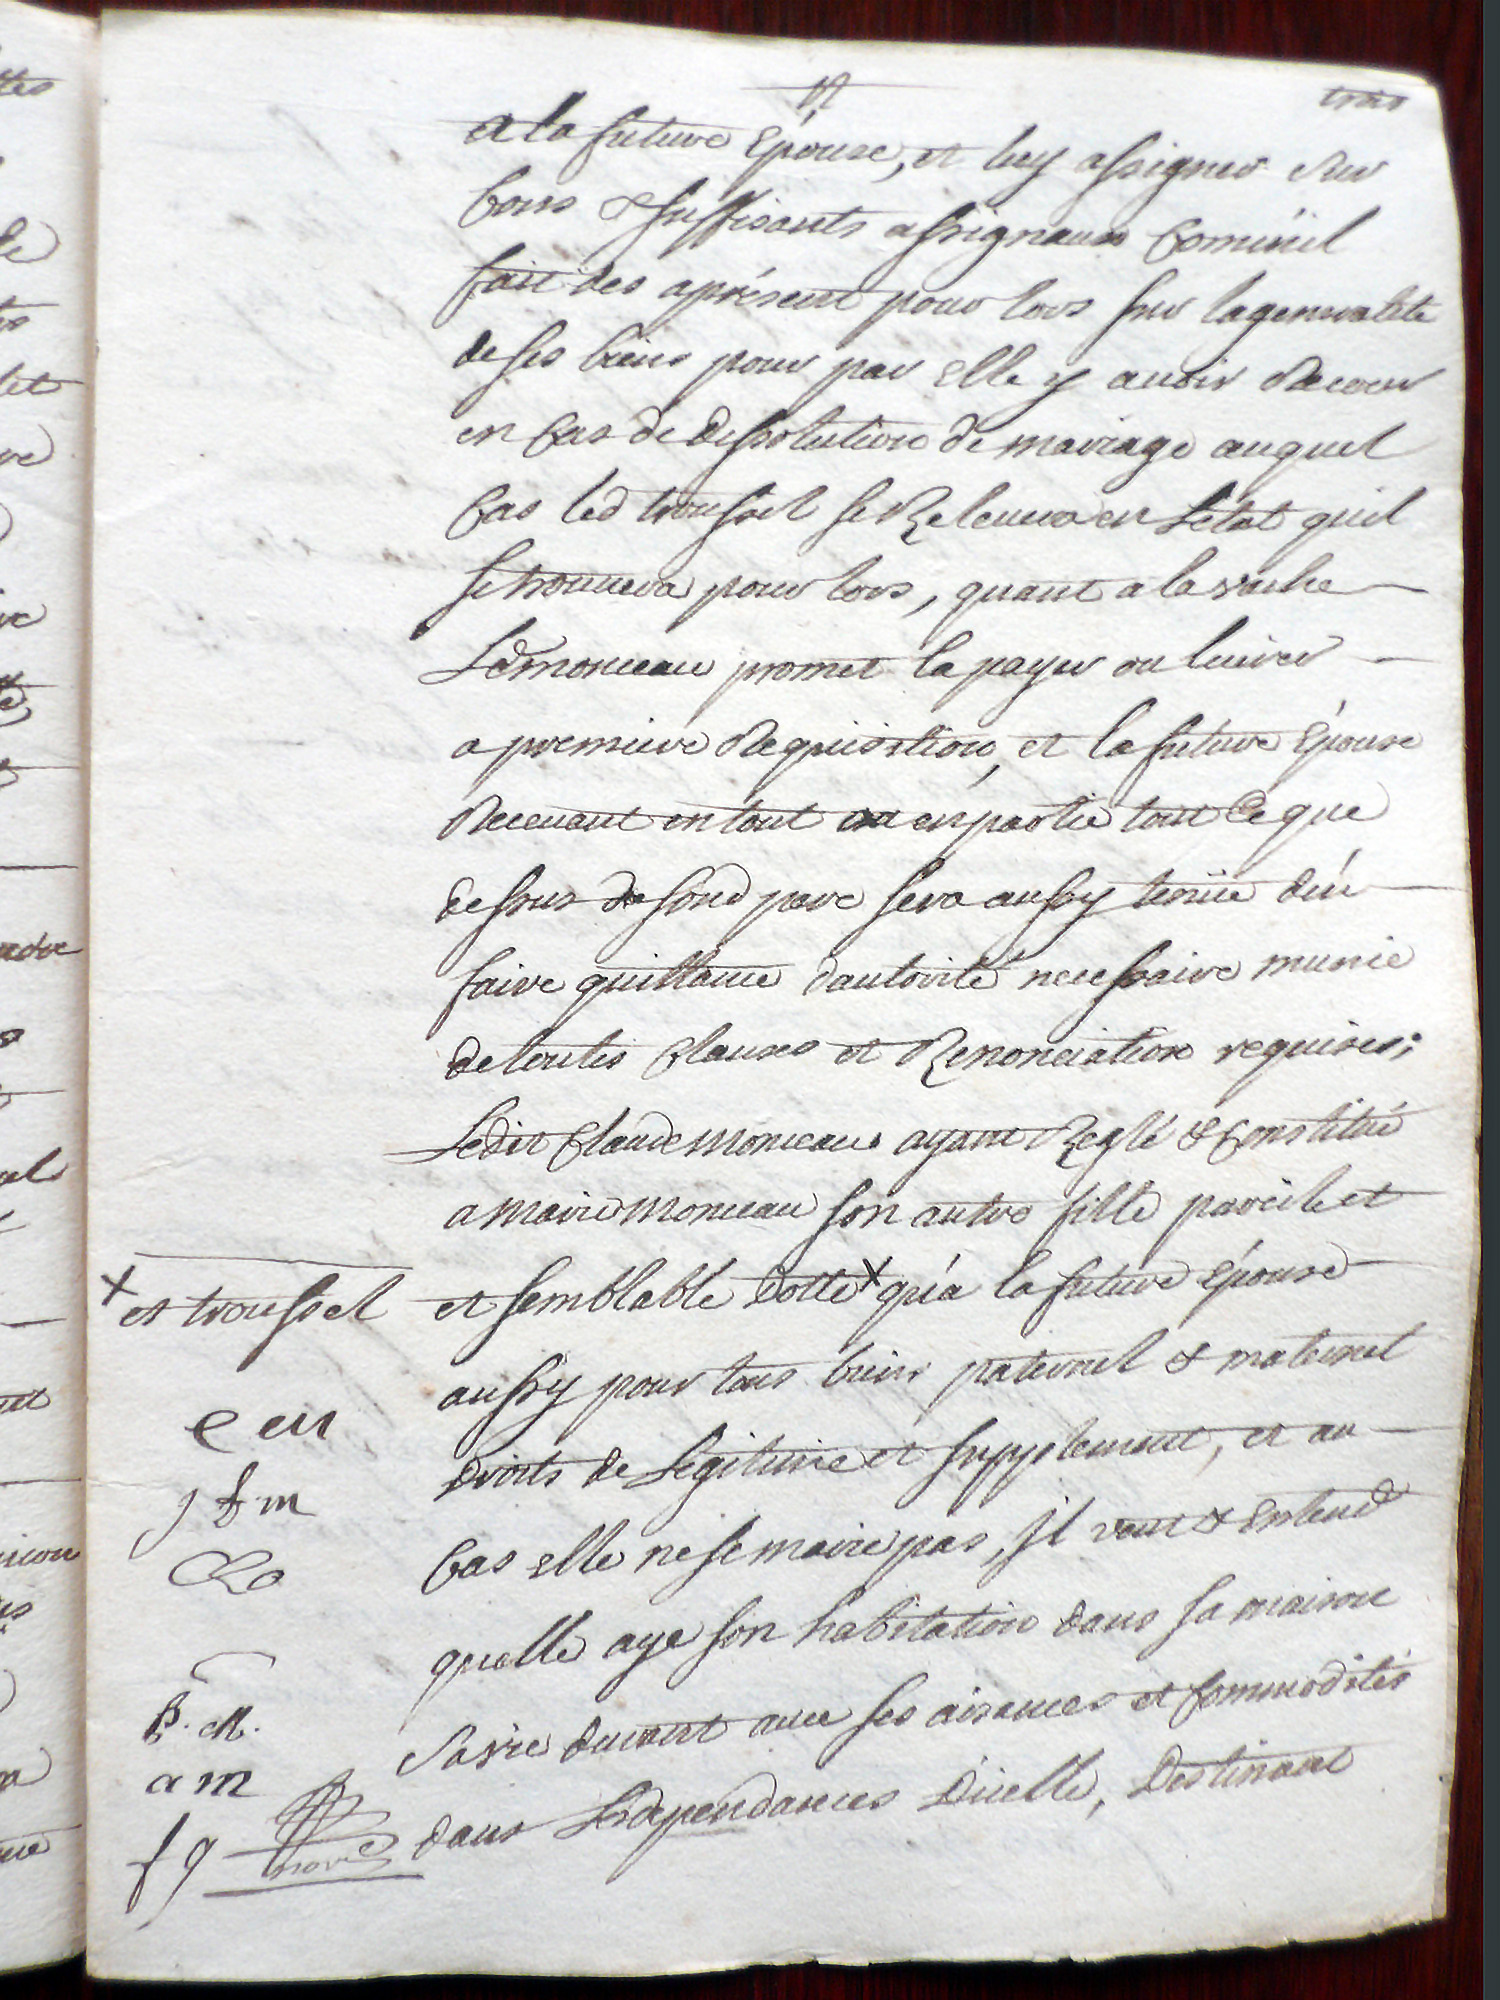 trois
a la future Epouse, et luy assigner sur
bons & suffisants assignaux Comüil
fait des aprésent pour lors sur lageneralité
de ses biens pour par elle y avoir Recour
en Cas de dessolution de mariage auquel
Cas led troussel se Relevera en Letat quil
se trouvera pour lors, quant a la vache
Led monceau promet la payer ou livrer
a premiere Requisition, et la future Epouse
Recevant en tout ou en partie tout Ce que
dessus de sond pere sera aussy tenüe d'en
faire quittance d'autorité necessaire munie
de toutes Clauses et Renonciation requises;
Ledit Claude Monceau ayant Reglé & Constitué
a Marie Monceau son autre fille pareil et
et semblable Dotte X qu'a la future Epouse
X et troussel
aussy pour tous biens paternel & maternel
droits de Legitime et supplement, et au
Cas elle ne se marie pas, Jl veut & Entend
quelle aye son habitation dans sa maison
Sa vie durant avec ses aisances et Commodités
dans Les dependances Dicelle, Destinant
e m
j f m
B. M.
a m
f g